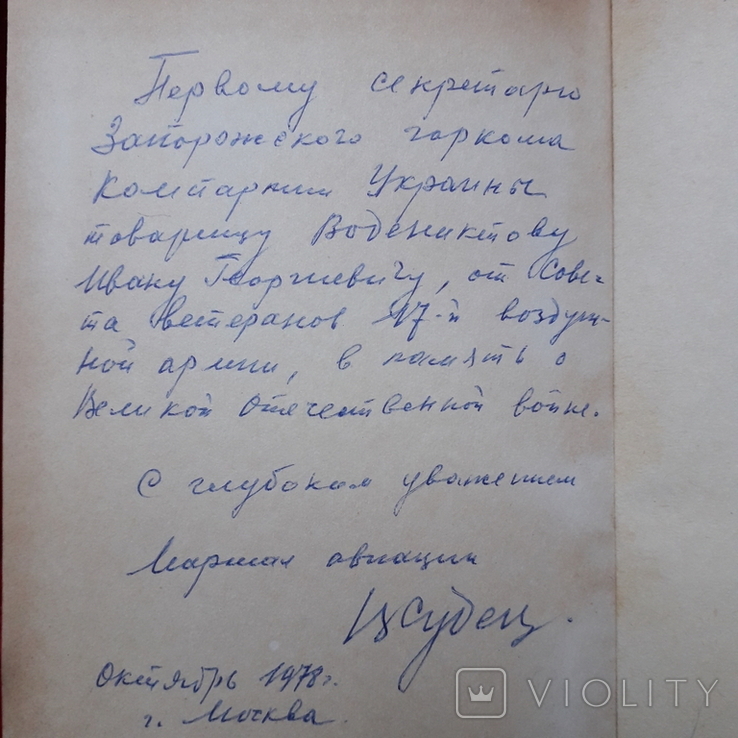 Первому секретарю
Запорожского горкома
Компартии Украины
товарищу Водениктову
Ивану Георгиевичу, от Сове-
та ветеранов 17-й воздуш-
ной армии, в память о
Великой Отечественной войне.
С глубоким уважением
Маршал авиации
Судец.
Октябрь 1978г.
г. Москва.
VIOLITY